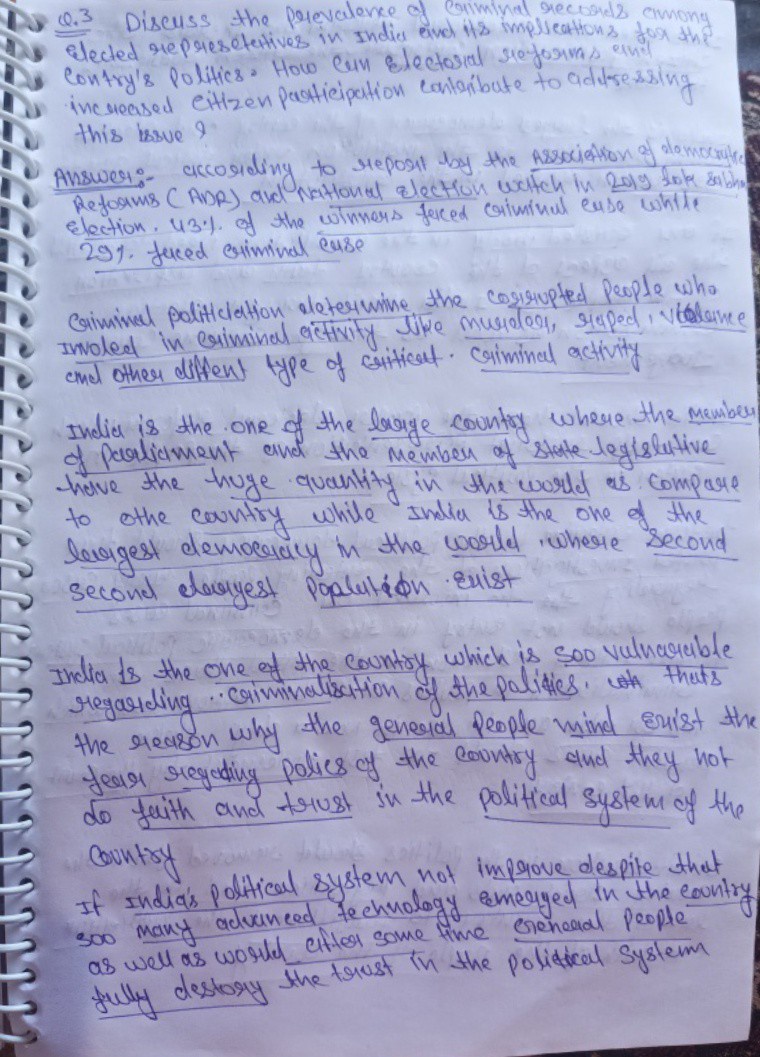 Q.3 Discuss the prevalence of criminal records among
elected represetetives in India and its implications for the
contry's politics. How can electoral reforms and
increased citizen participation contribute to addressing
this issue ?
Answer:- according to report by the Association of democratic
Reforms (ADR) and National election watch in 2019 lok Sabha
Election. 43% of the winners faced criminal case while
29% faced criminal case
Criminal politiclation determine the corrupted people who
Involed in criminal activity like murder, raped, violance
and other diffent type of critical. criminal activity
India is the one of the large country where the member
of parliament and the member of state legislative
have the huge quantity in the world as compare
to othe country while India is the one of the
largest democracy in the world where second
second largest poplution exist
India is the one of the country which is soo vulnarable
regarding criminalisation of the polities. thats
the reason why the general people mind exist the
fear regading polics of the country and they not
do faith and trust in the political system of the
country
If India's political system not improve despite that
soo many advanced technology emerged in the country
as well as world after some time General people
fully destory the trust in the political system